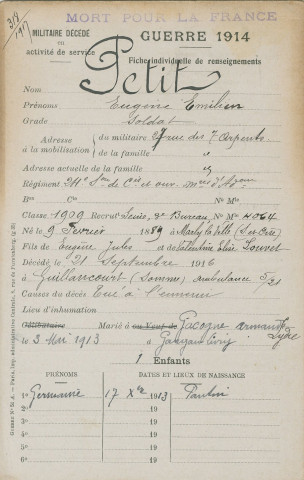 MORT POUR LA FRANCE
318
1917
MILITAIRE DÉCÉDÉ
en
activité de service
GUERRE 1914
Fiche individuelle de renseignements
Petit
Nom
Prénoms Eugène Emilien
Grade Soldat
Adresse à la mobilisation { du militaire 27 rue des 7 Arpents
de la famille "
Adresse actuelle de la famille "
Régiment 21e Son de
Bon Cie No Mle
Classe 1909 Recrutt Seine, 2e Bureau, No Mle 4064
Né le 9 Février 1889 à Marly la Ville (Set Oise)
Fils de Eugène Jules et de Valentine Elise Louvet
Décédé le 21 Septembre 1916
à Guillaucourt (Somme) ambulance 5/21
Causes du décès Tué à l'ennemi
Lieu d'inhumation
Célibataire Marié à ou Veuf de Gacogne Armande
Lydie
le 3 Mai 1913 à
1 Enfants
PRÉNOMS DATES ET LIEUX DE NAISSANCE
1° Germaine 17 Xbre 1913 Pantin
2° 19
3° 19
4° 19
5° 19
6° 19